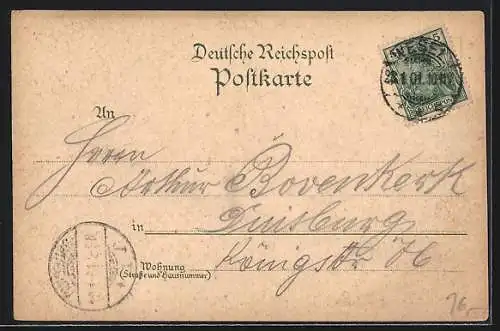 Deutsche Reichspost
Postkarte
WESEL
1.01.10
An
Herrn
Arthur Bovenkerk
in Duisburg
Wohnung
(Straße und Hausnummer)
Königstr. 76
76